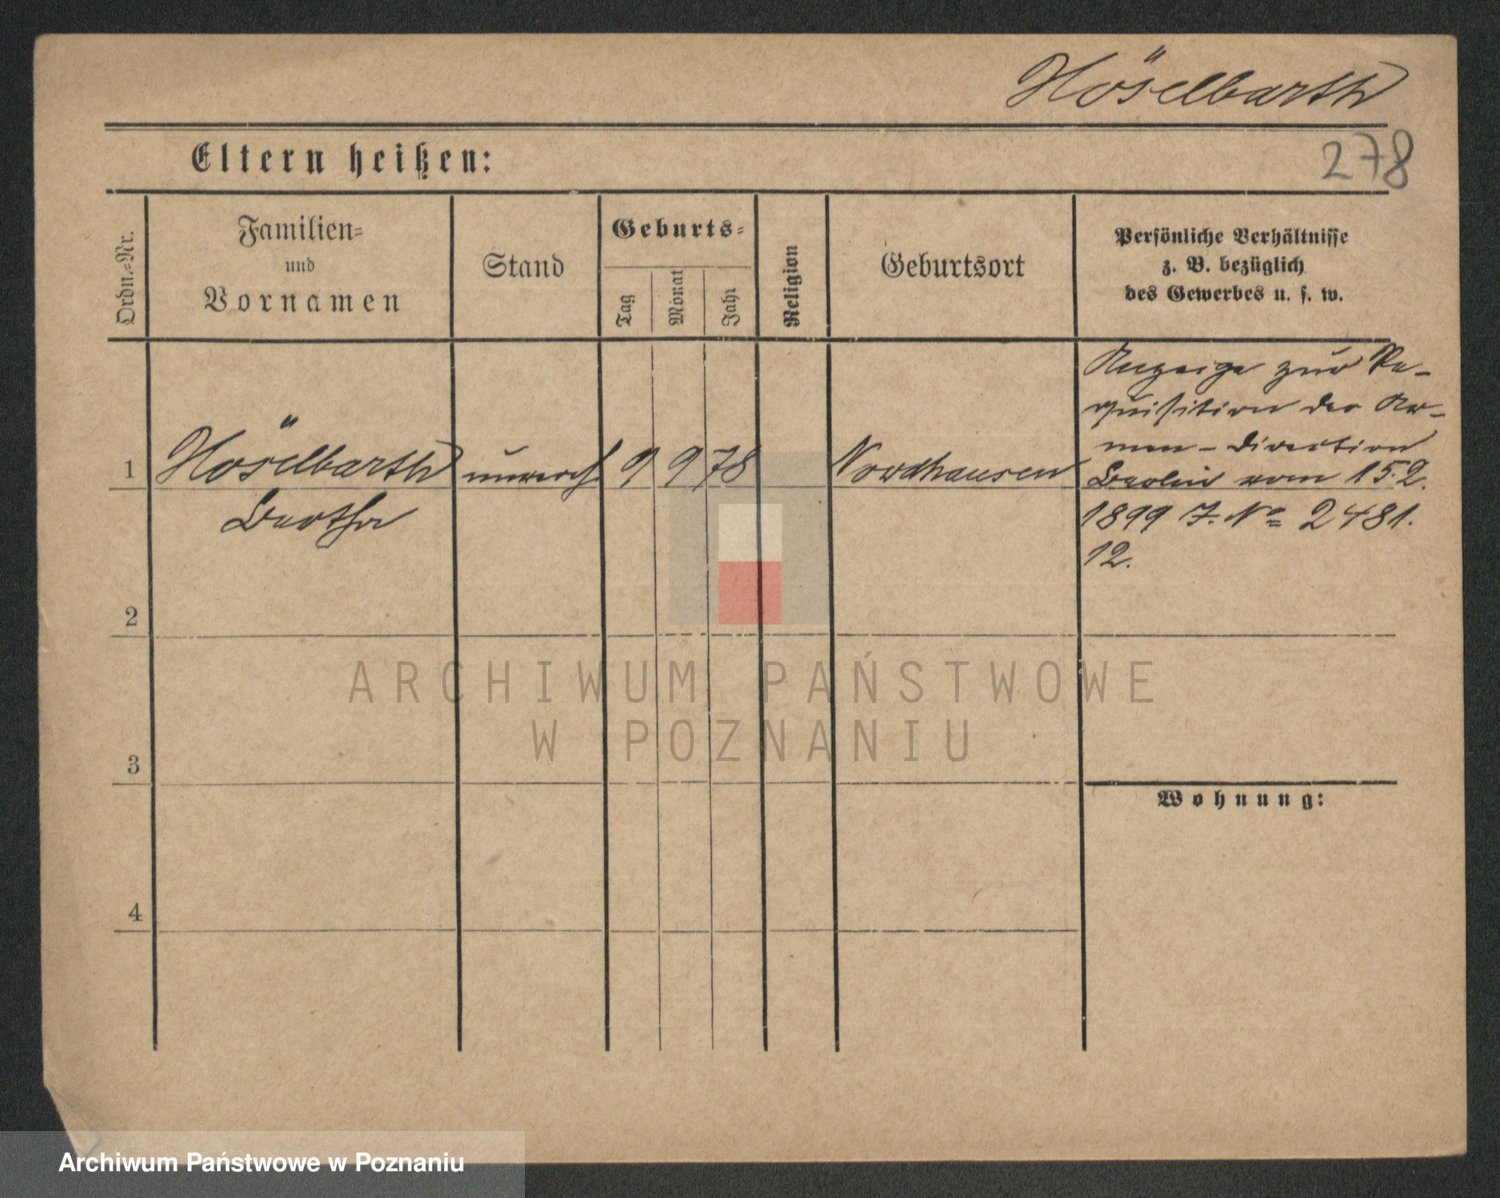 Höselbarth
278
Eltern heißen:
Ordn.=Nr.
Familien=
und
Vornamen
Stand
Geburts=
Tag
Monat
Jahr
Religion
Geburtsort
Persönliche Verhältnisse
z. B. bezüglich
des Gewerbes u. s. w.
1
Höselbarth
Bertha
unverh
9
9
78
Nordhausen
Anzeige zur Re-
quisition der Ar-
men-Direction
Berlin vom 15.2.
1899 J. No 2481.
12.
2
3
Wohnung:
4
ARCHIWUM PAŃSTWOWE
W POZNANIU
Archiwum Państwowe w Poznaniu